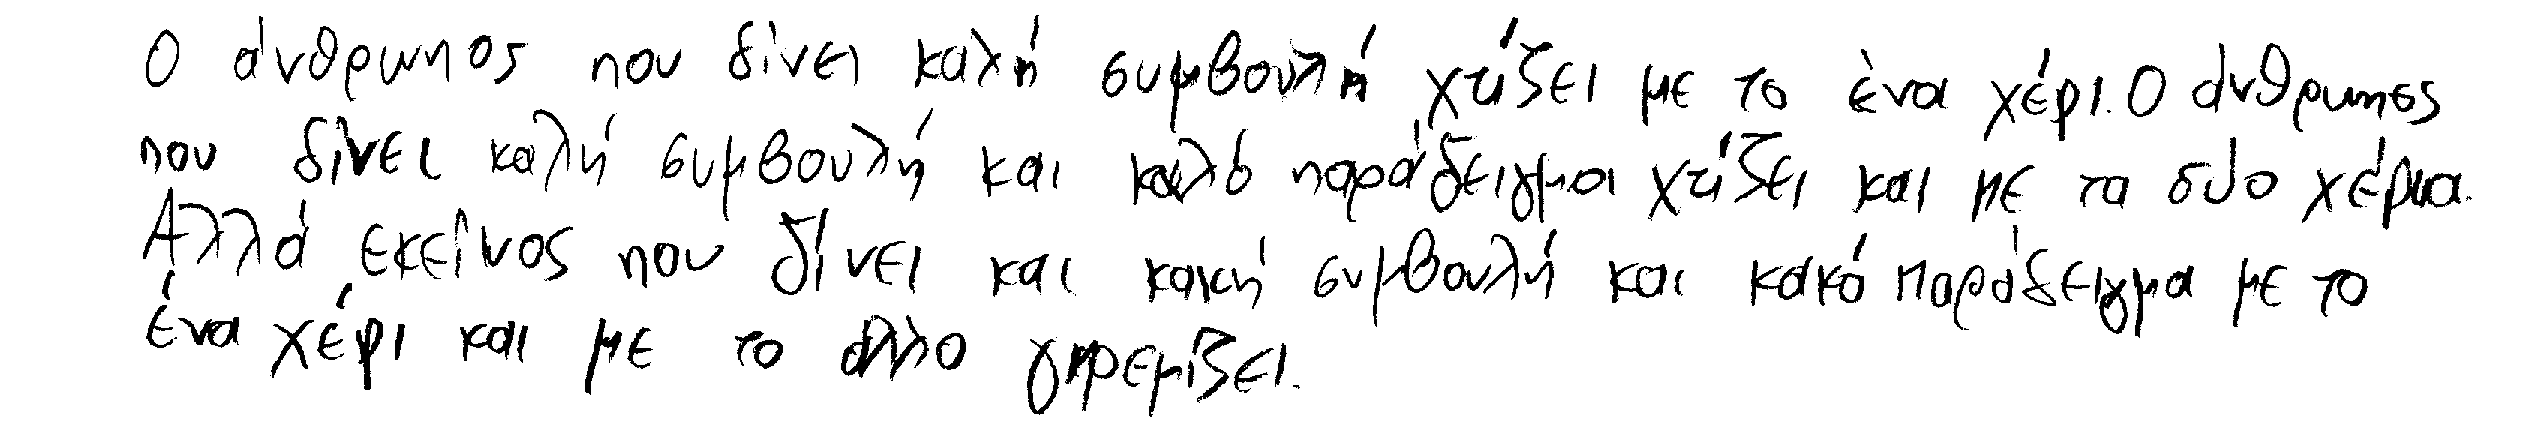 Ο άνθρωπος που δίνει καλή συμβουλή χτίζει με το ένα χέρι. Ο άνθρωπος
που δίνει καλή συμβουλή και καλό παράδειγμα χτίζει και με τα δυο χέρια.
Αλλά εκείνος που δίνει και κακή συμβουλή και κακό παράδειγμα με το
ένα χέρι και με το άλλο γκρεμίζει.